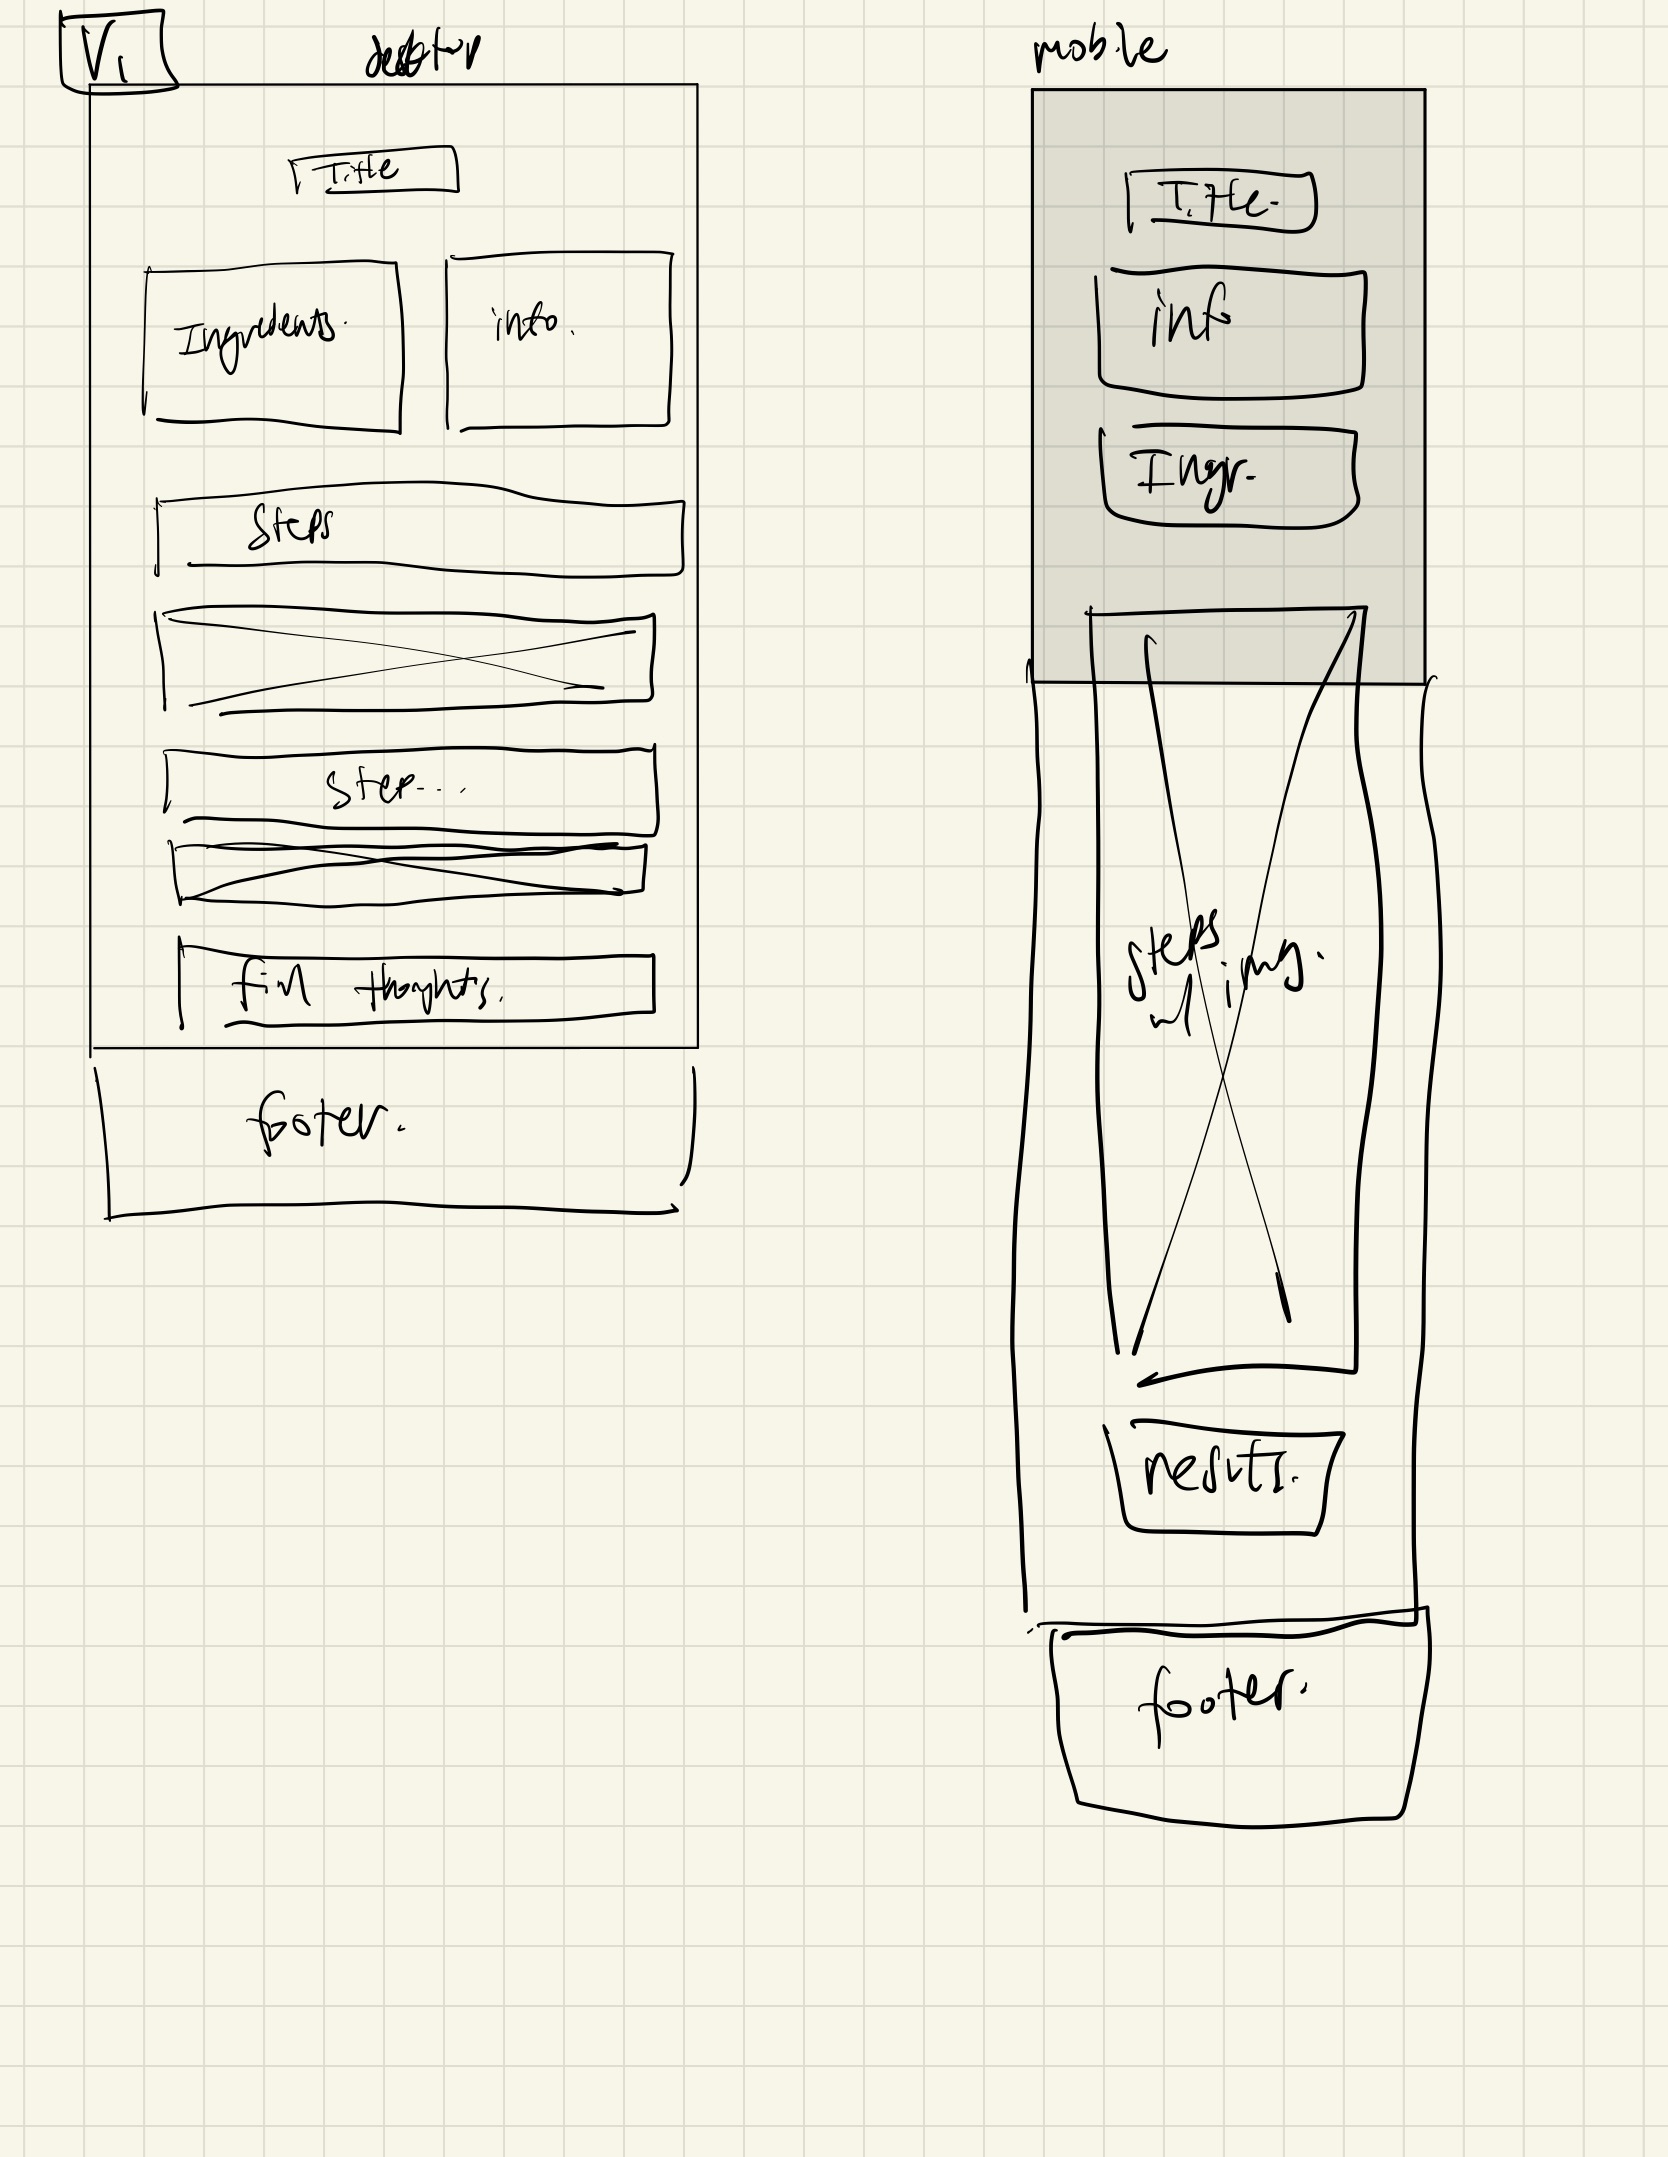 V1
desktop
Title
Ingredients.
info.
Steps
Step...
fin thoughts.
footer.
mobile
Title.
info
Ingr.
steps
w/ img.
results.
footer.